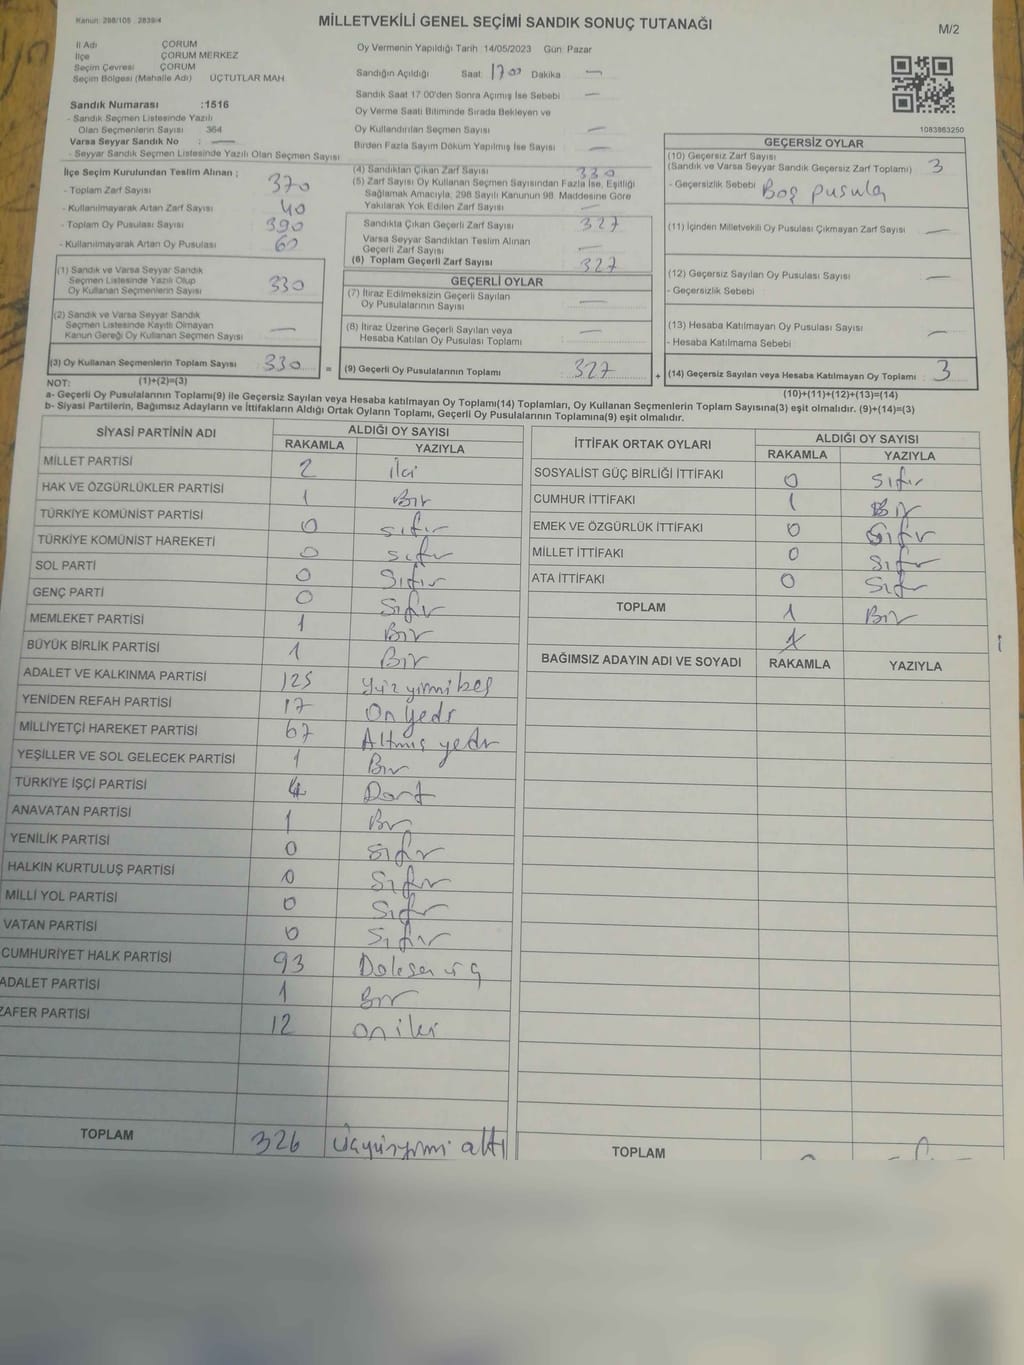 Kanun: 298/105 . 2839/4
MİLLETVEKİLİ GENEL SEÇİMİ SANDIK SONUÇ TUTANAĞI
M/2
İl Adı ÇORUM
İlçe ÇORUM MERKEZ
Seçim Çevresi ÇORUM
Seçim Bölgesi (Mahalle Adı) UÇTUTLAR MAH.
Sandık Numarası :1516
- Sandık Seçmen Listesinde Yazılı
Olan Seçmenlerin Sayısı 364
Varsa Seyyar Sandık No : —
- Seyyar Sandık Seçmen Listesinde Yazılı Olan Seçmen Sayısı
Oy Vermenin Yapıldığı Tarih 14/05/2023 Gün: Pazar
Sandığın Açıldığı Saat: 17 00 Dakika —
Sandık Saat 17.00'den Sonra Açımış İse Sebebi —
Oy Verme Saati Bitiminde Sırada Bekleyen ve
Oy Kullandırılan Seçmen Sayısı —
Birden Fazla Sayım Döküm Yapılmış İse Sayısı —
1083863250
İlçe Seçim Kurulundan Teslim Alınan ;
- Toplam Zarf Sayısı 370
- Kullanılmayarak Artan Zarf Sayısı 40
- Toplam Oy Pusulası Sayısı 390
- Kullanılmayarak Artan Oy Pusulası 60
(1) Sandık ve Varsa Seyyar Sandık
Seçmen Listesinde Yazılı Olup
Oy Kullanan Seçmenlerin Sayısı 330
(2) Sandık ve Varsa Seyyar Sandık
Seçmen Listesinde Kayıtlı Olmayan
Kanun Gereği Oy Kullanan Seçmen Sayısı —
(3) Oy Kullanan Seçmenlerin Toplam Sayısı 330 =
(4) Sandıktan Çıkan Zarf Sayısı 330
(5) Zarf Sayısı Oy Kullanan Seçmen Sayısından Fazla İse, Eşitliği
Sağlamak Amacıyla, 298 Sayılı Kanunun 98. Maddesine Göre
Yakılarak Yok Edilen Zarf Sayısı —
Sandıkta Çıkan Geçerli Zarf Sayısı 327
Varsa Seyyar Sandıktan Teslim Alınan
Geçerli Zarf Sayısı —
(6) Toplam Geçerli Zarf Sayısı 327
GEÇERLİ OYLAR
(7) İtiraz Edilmeksizin Geçerli Sayılan
Oy Pusulalarının Sayısı —
(8) İtiraz Üzerine Geçerli Sayılan veya
Hesaba Katılan Oy Pusulaları Toplamı —
(9) Geçerli Oy Pusulalarının Toplamı 327 +
GEÇERSİZ OYLAR
(10) Geçersiz Zarf Sayısı 3
(Sandık ve Varsa Seyyar Sandık Geçersiz Zarf Toplamı)
- Geçersizlik Sebebi Boş pusula
(11) İçinden Milletvekili Oy Pusulası Çıkmayan Zarf Sayısı —
(12) Geçersiz Sayılan Oy Pusulası Sayısı —
- Geçersizlik Sebebi
(13) Hesaba Katılmayan Oy Pusulası Sayısı —
- Hesaba Katılmama Sebebi
(14) Geçersiz Sayılan veya Hesaba Katılmayan Oy Toplamı 3
NOT: (1)+(2)=(3) (10)+(11)+(12)+(13)=(14)
a- Geçerli Oy Pusulalarının Toplamı(9) ile Geçersiz Sayılan veya Hesaba katılmayan Oy Toplamı(14) Toplamları, Oy Kullanan Seçmenlerin Toplam Sayısına(3) eşit olmalıdır.
b- Siyasi Partilerin, Bağımsız Adayların ve İttifakların Aldığı Ortak Oyların Toplamı, Geçerli Oy Pusulalarının Toplamına(9) eşit olmalıdır. (9)+(14)=(3)
SİYASİ PARTİNİN ADI ALDIĞI OY SAYISI
RAKAMLA YAZIYLA
MİLLET PARTİSİ 2 iki
HAK VE ÖZGÜRLÜKLER PARTİSİ 1 Bir
TÜRKİYE KOMÜNİST PARTİSİ 0 sıfır
TÜRKİYE KOMÜNİST HAREKETİ 0 sıfır
SOL PARTİ 0 Sıfır
GENÇ PARTİ 0 Sıfır
MEMLEKET PARTİSİ 1 Bir
BÜYÜK BİRLİK PARTİSİ 1 Bir
ADALET VE KALKINMA PARTİSİ 125 Yüz yirmi beş
YENİDEN REFAH PARTİSİ 17 On Yedi
MİLLİYETÇİ HAREKET PARTİSİ 67 Altmış yedi
YEŞİLLER VE SOL GELECEK PARTİSİ 1 Bir
TÜRKİYE İŞÇİ PARTİSİ 4 Dört
ANAVATAN PARTİSİ 1 Bir
YENİLİK PARTİSİ 0 Sıfır
HALKIN KURTULUŞ PARTİSİ 0 Sıfır
MİLLİ YOL PARTİSİ 0 Sıfır
VATAN PARTİSİ 0 Sıfır
CUMHURİYET HALK PARTİSİ 93 Doksan üç
ADALET PARTİSİ 1 Bir
ZAFER PARTİSİ 12 on iki
TOPLAM 326 Üçyüzyirmi altı
İTTİFAK ORTAK OYLARI ALDIĞI OY SAYISI
RAKAMLA YAZIYLA
SOSYALİST GÜÇ BİRLİĞİ İTTİFAKI 0 Sıfır
CUMHUR İTTİFAKI 1 Bir
EMEK VE ÖZGÜRLÜK İTTİFAKI 0 Sıfır
MİLLET İTTİFAKI 0 Sıfır
ATA İTTİFAKI 0 Sıfır
TOPLAM 1 Bir
BAĞIMSIZ ADAYIN ADI VE SOYADI RAKAMLA YAZIYLA
TOPLAM